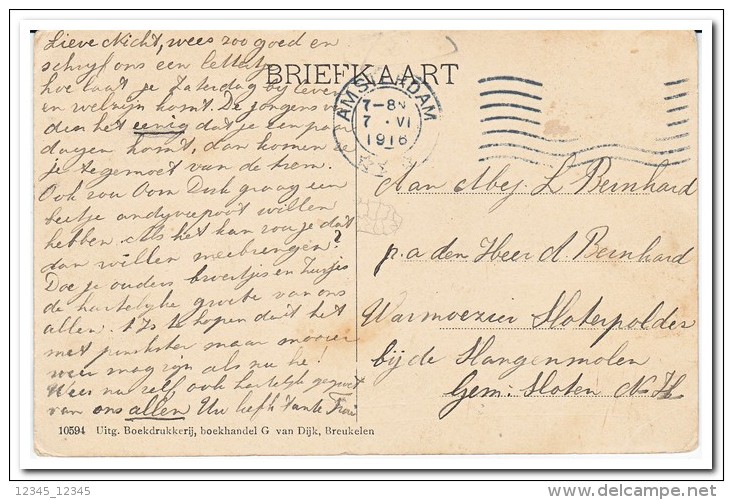 Lieve Nicht, wees zoo goed en
schryf ons een lettertje
hoe laat je Zaterdag by leven
en welzijn komt. De jongens
den het eenig dat je een paar
dagen komt, dan komen ze
je tegemoet van de trem.
Ook zou Oom Dirk graag een
beetje andyviepoot willen
hebben. Als het kan zou je dat
dan willen meebrengen?
Doe je ouders broertjes en Zusjes
de hartelyke groete van ons
allen. t Is te hopen dat het
met pinkster maar mooier
weer mag zyn als nu he!
Wees nu zelf ook hartelyk gegroet
van ons allen Uw liefh Tante
BRIEFKAART
AMSTERDAM
7-8N
7 . VI
1916
Aan Mej. L Bernhard
p. a den Heer A. Bernhard
Warmoezier Sloterpolder
bij de Slangenmolen
Gem: Sloten N-H
10594 Uitg. Boekdrukkerij, boekhandel G van Dijk, Breukelen
12345_12345
delcampe.net